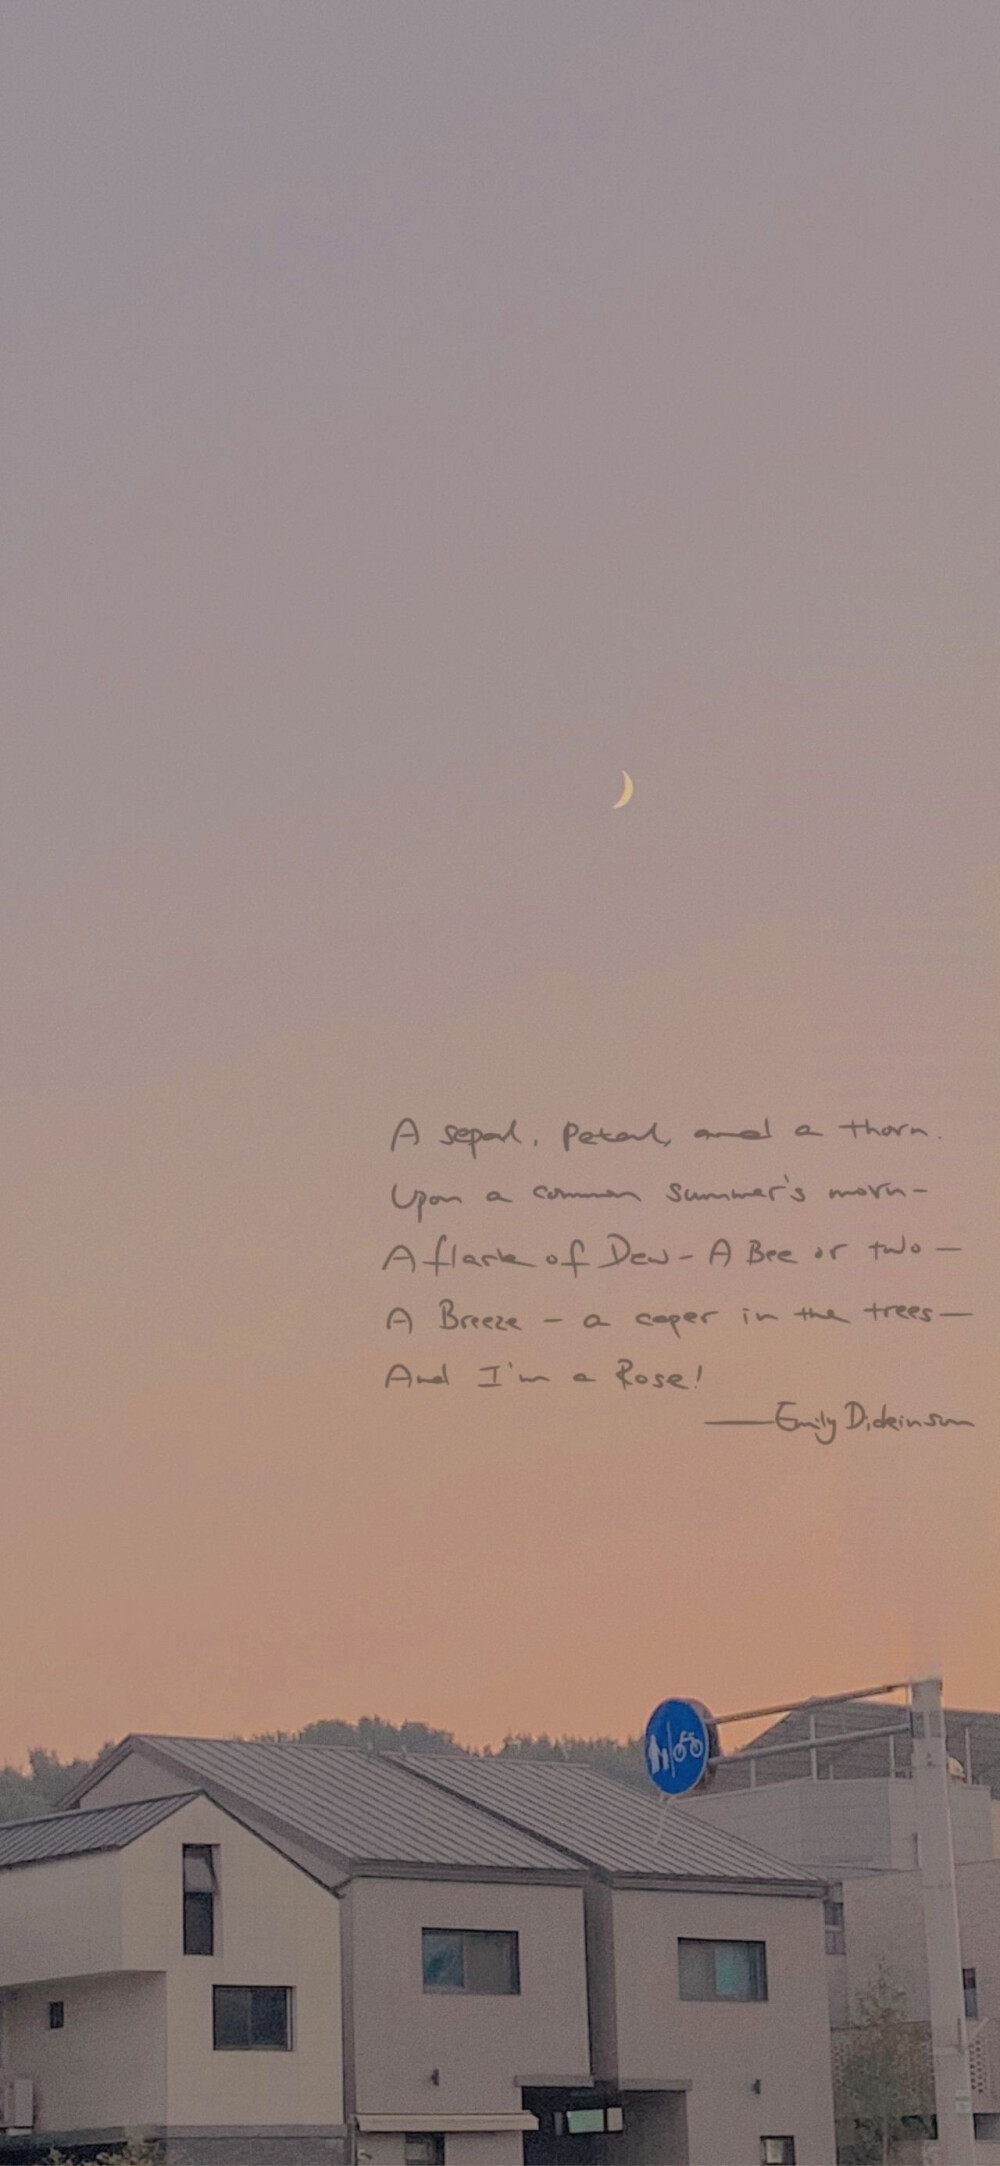 A sepal, petal, and a thorn.
Upon a common summer's morn-
A flask of Dew-A Bee or two-
A Breeze - a caper in the trees-
And I'm a Rose!
—Emily Dickinson